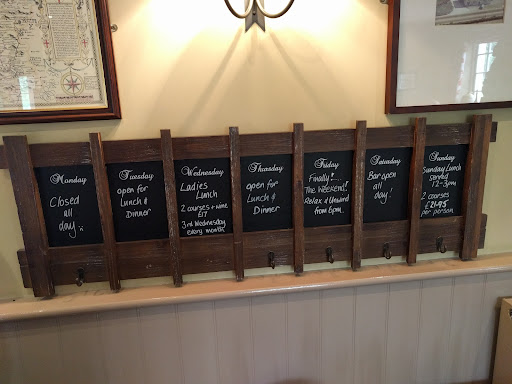 Monday
Closed
all
day :
Tuesday
open for
Lunch &
Dinner
Wednesday
Ladies
Lunch
2 courses + wine
£17
3rd Wednesday
every month
Thursday
open for
Lunch &
Dinner
Friday
Finally!....
The Weekend!
Relax & Unwind
from 6pm.
Saturday
Bar open
all
day!
Sunday
Sunday Lunch
served
12-3pm
2 courses
£21.95
per person